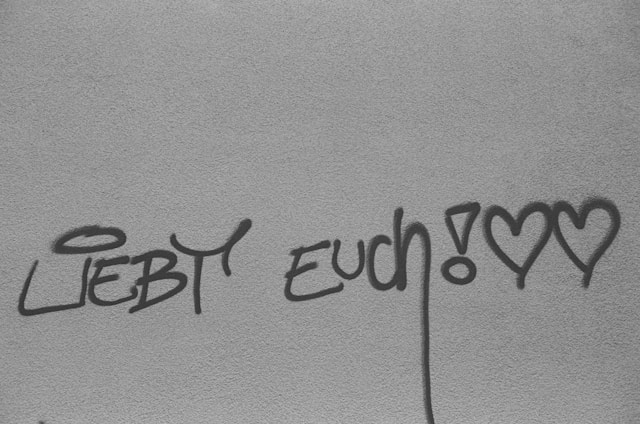 LiEBT EUCh! ♡♡